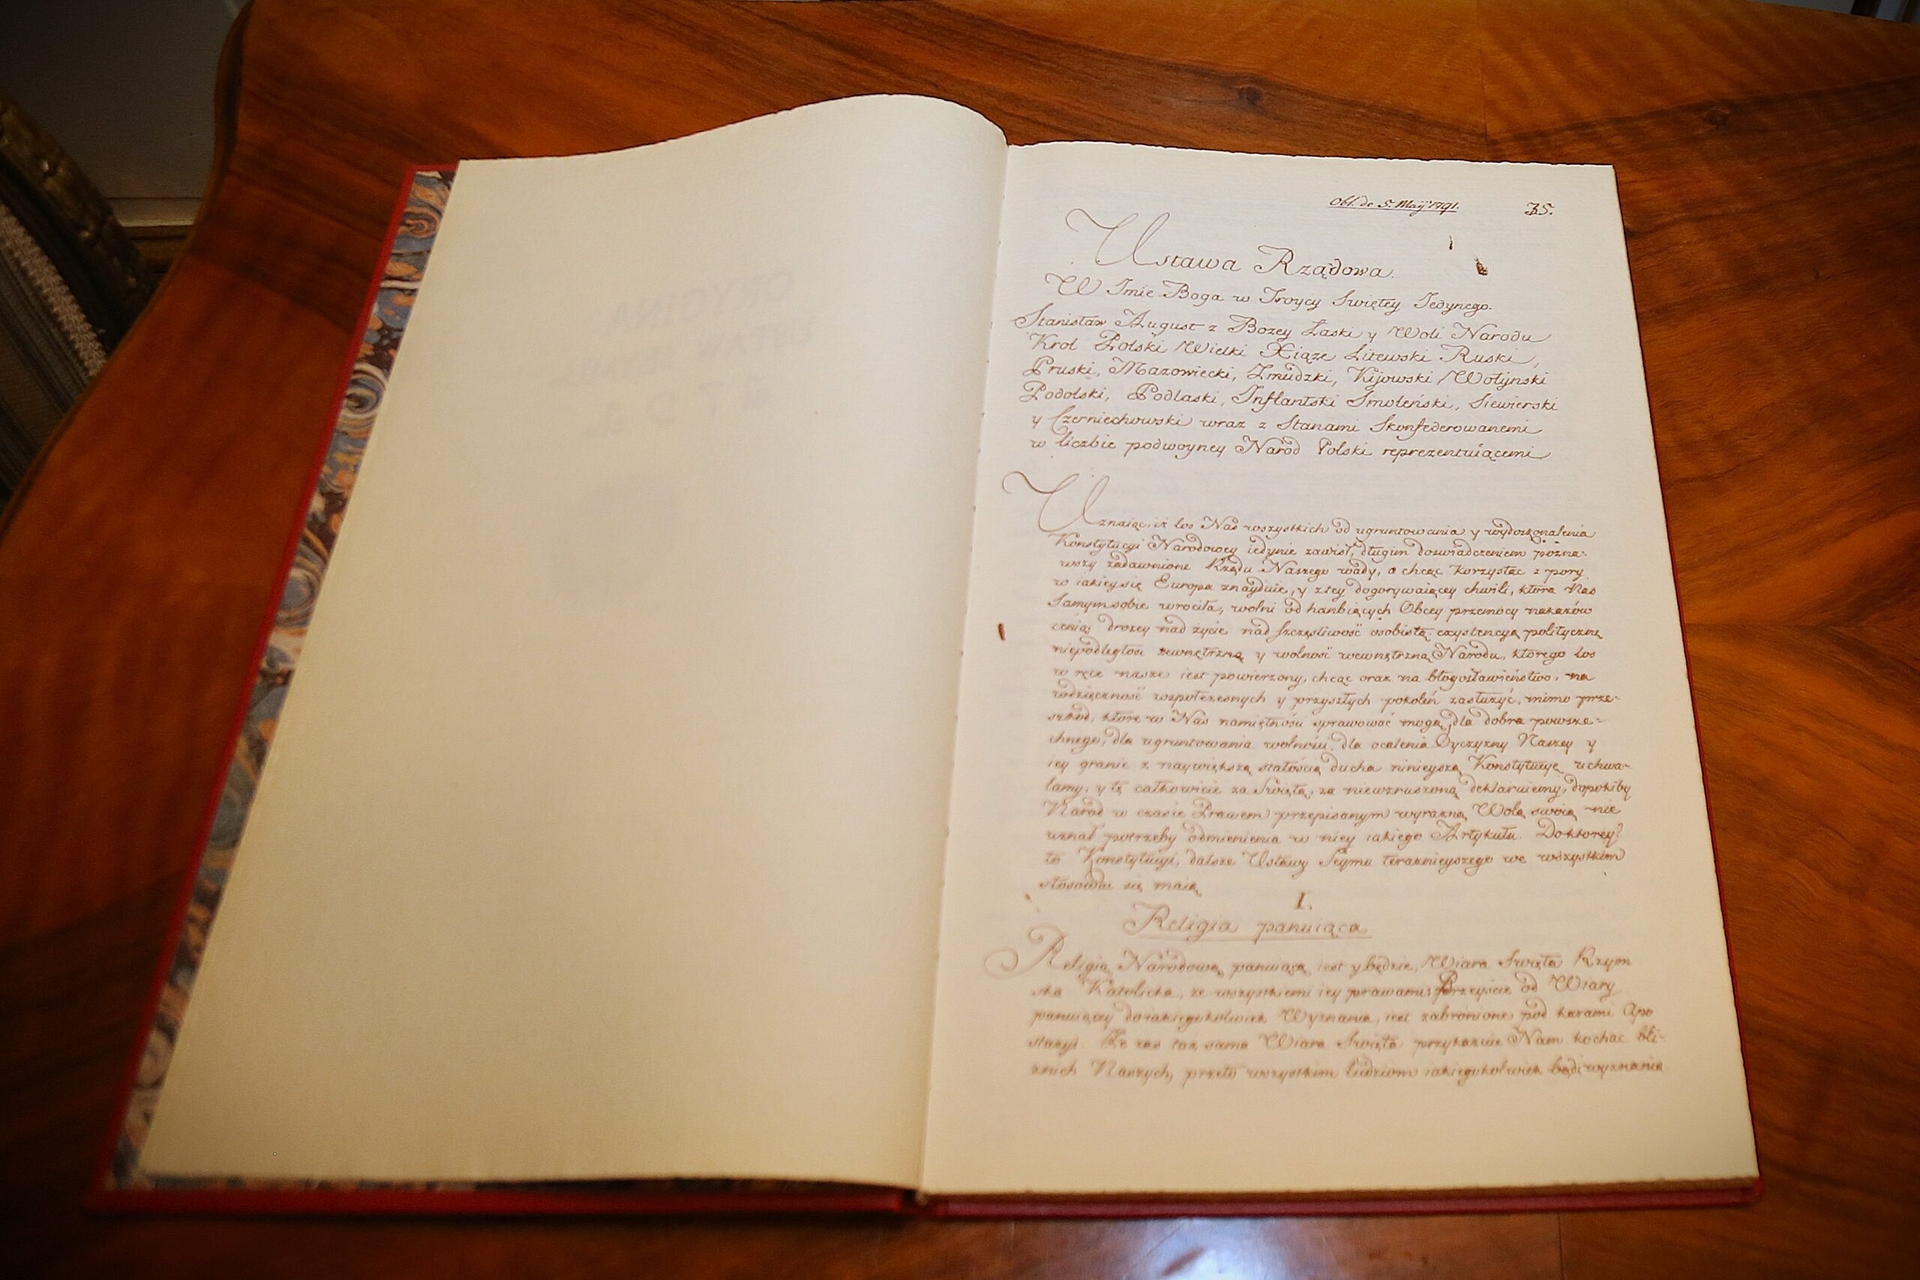 Obl. de 5. Maij 1791. 35.
Ustawa Rządowa.
W Imie Boga w Troycy Swiętey Jedynego.
Stanisław August z Bozey Łaski y Woli Narodu
Krol Polski Wielki Xiąze Litewski Ruski,
Pruski, Mazowiecki, Zmudzki, Kijowski Wołyński
Podolski, Podlaski, Inflantski Smoleński, Siewierski
y Czerniechowski wraz z Stanami Skonfederowanemi
w liczbie podwoyney Naród Polski reprezentuiącemi
Uznaiąc, iż los Nas wszystkich od ugruntowania y wydoskonalenia
Konstytucyi Narodowey iedynie zawisł, długim doswiadczeniem pozna-
wszy zadawnione Rządu Naszego wady, a chcąc korzystać z pory
w iakiey się Europa znayduie, y z tey dogorywaiącey chwili, ktora Nas
samym sobie wrociła, wolni od hanbiących Obcey przemocy nakazów
ceniąc drozey nad życie nad szczęsliwość osobistą, exystencyą polityczną
niepodległość zewnętrzną y wolność wewnętrzną Narodu, ktorego los
w ręce nasze iest powierzony, chcąc oraz na błogosławieństwo, na
wdzięczność współczesnych y przyszłych pokoleń zasłużyć, mimo prze-
szkód, ktore w Nas namiętności sprawować mogą, dla dobra powsze-
chnego, dla ugruntowania wolności, dla ocalenia Oyczyzny Naszey y
iey granic z naywiększą stałością ducha ninieyszą Konstytucyę uchwa-
lamy, y tę całkowicie za Swiętą, za niewzruszoną deklaruiemy, dopókiby
Naród w czasie Prawem przepisanym wyrazną Wolą swoią nie
uznał potrzeby odmienienia w niey iakiego Artykułu. Do ktorey
to Konstytucyi, dalsze Ustawy Seymu teraznieyszego we wszystkim
stosować się maią
I.
Religia panuiąca
Religią Narodową panuiącą iest y będzie, Wiara Swięta Rzym
ska Katolicka, ze wszystkiemi iey prawami Przejście od Wiary
panuiącey do iakiegokolwiek Wyznania, iest zabronione pod karami Apo
stazyi. Ze zas taż sama Wiara Swięta przykazuie Nam kochać bli-
znich Naszych, przeto wszystkim ludziom iakiegokolwiek bądź wyznania